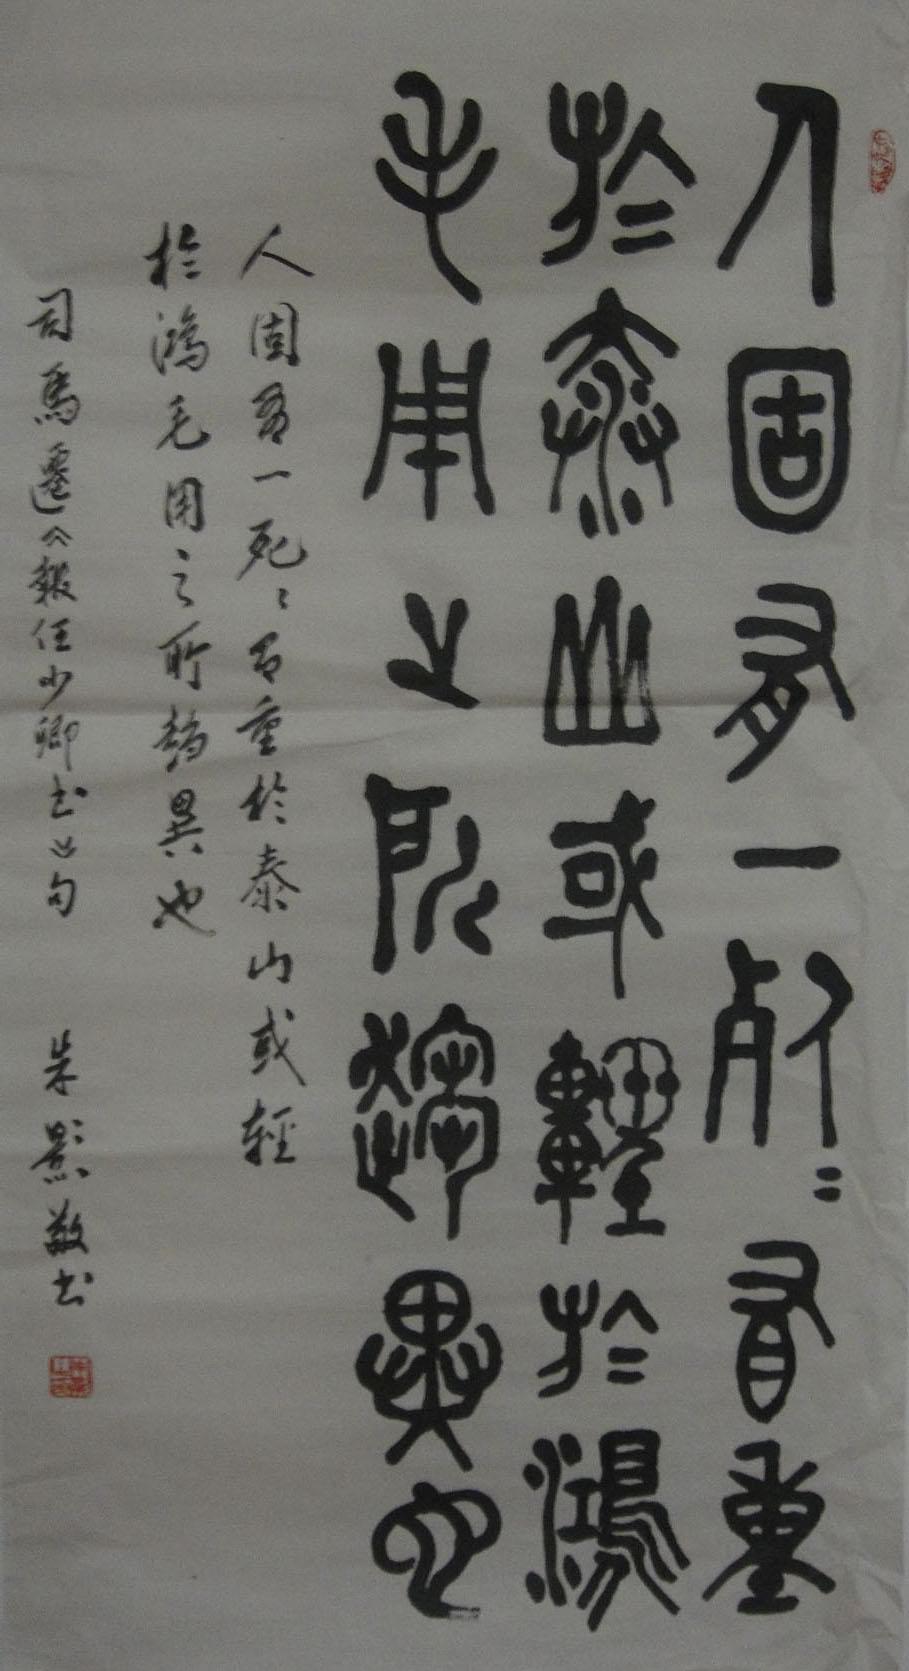 人固有一死〻有重
於泰山或輕於鴻
毛用之所趨異也
人固有一死〻有重於泰山或輕
於鴻毛用之所趨異也
司馬遷《報任少卿书》句 朱影敬书